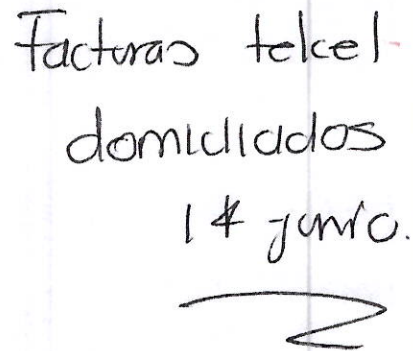 Facturas telcel
domiciliados
14 junio.